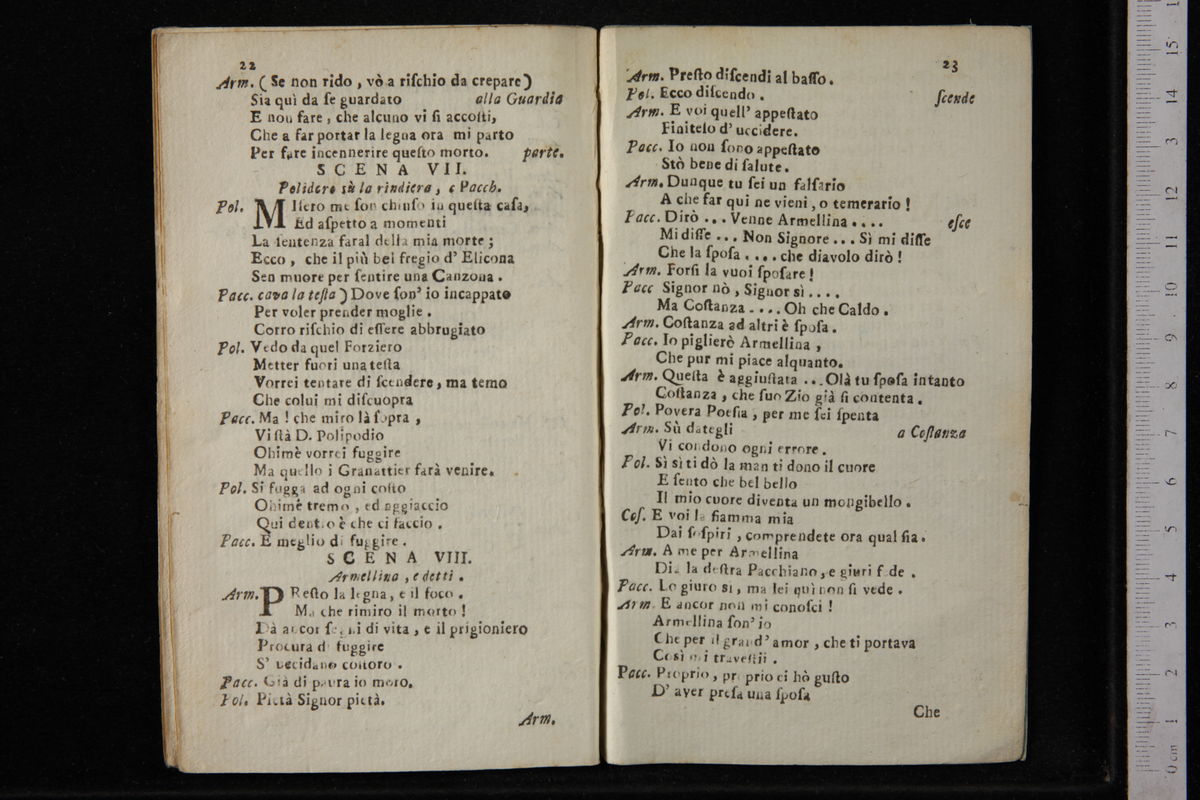 22
Arm. ( Se non rido , vò a riſchio da crepare )
Sia quì da ſe guardato alla Guardia
E non fare , che alcuno vi ſi accoſti,
Che a far portar la legna ora mi parto
Per fare incennerire queſto morto. parte.
SCENA VII.
Polidoro sù la rindiera , e Pacch.
Pol. MIſero me ſon chiuſo in queſta caſa,
Ed aſpetto a momenti
La ſentenza faral della mia morte ;
Ecco , che il più bel fregio d' Elicona
Sen muore per ſentire una Canzona .
Pacc. cava la teſta ) Dove ſon' io incappato
Per voler prender moglie .
Corro riſchio di eſſere abbrugiato
Pol. Vedo da quel Forziero
Metter fuori una teſta
Vorrei tentare di ſcendere, ma temo
Che colui mi diſcuopra
Pacc. Ma ! che miro là ſopra ,
Vi ſtà D. Polipodio
Ohimè vorrei fuggire
Ma quello i Granattier farà venire.
Pol. Si fugga ad ogni coſto
Ohimè tremo , ed aggiaccio
Qui dentro è che ci faccio .
Pacc. E meglio di fuggire .
SCENA VIII.
Armellina , e detti .
Arm. PReſto la legna, e il foco .
Ma che rimiro il morto !
Dà ancor ſegni di vita , e il prigioniero
Procura di fuggire
S' uccidano coſtoro .
Pacc. Già di paura io moro.
Pol. Pietà Signor pietà.
Arm.
23
Arm. Preſto diſcendi al baſſo.
Pol. Ecco diſcendo . ſcende
Arm. E voi quell' appeſtato
Finitelo d' uccidere.
Pacc. Io non ſono appeſtato
Stò bene di ſalute.
Arm. Dunque tu ſei un falſario
A che far qui ne vieni , o temerario !
Pacc. Dirò ... Venne Armellina .... eſce
Mi diſſe ... Non Signore ... Sì mi diſſe
Che la ſpoſa .... che diavolo dirò !
Arm. Forſi la vuoi ſpoſare !
Pacc Signor nò , Signor sì ....
Ma Coſtanza .... Oh che Caldo .
Arm. Coſtanza ad altri è ſpoſa.
Pacc. Io piglierò Armellina ,
Che pur mi piace alquanto.
Arm. Queſta è aggiuſtata ... Olà tu ſpoſa intanto
Coſtanza , che ſuo Zio già ſi contenta .
Pol. Povera Poeſia , per me ſei ſpenta
Arm. Sù dategli a Coſtanza
Vi condono ogni errore.
Pol. Sì sì ti dò la man ti dono il cuore
E ſento che bel bello
Il mio cuore diventa un mongibello .
Coſ. E voi la fiamma mia
Dai ſoſpiri , comprendete ora qual ſia.
Arm. A me per Armellina
Dia la deſtra Pacchiano, e giuri fede .
Pacc. Lo giuro si , ma lei quì non ſi vede .
Arm. E ancor non mi conoſci !
Armellina ſon' io
Che per il grand' amor , che ti portava
Così mi traveſtii .
Pacc. Proprio , proprio ci hò guſto
D' aver preſa una ſpoſa
Che